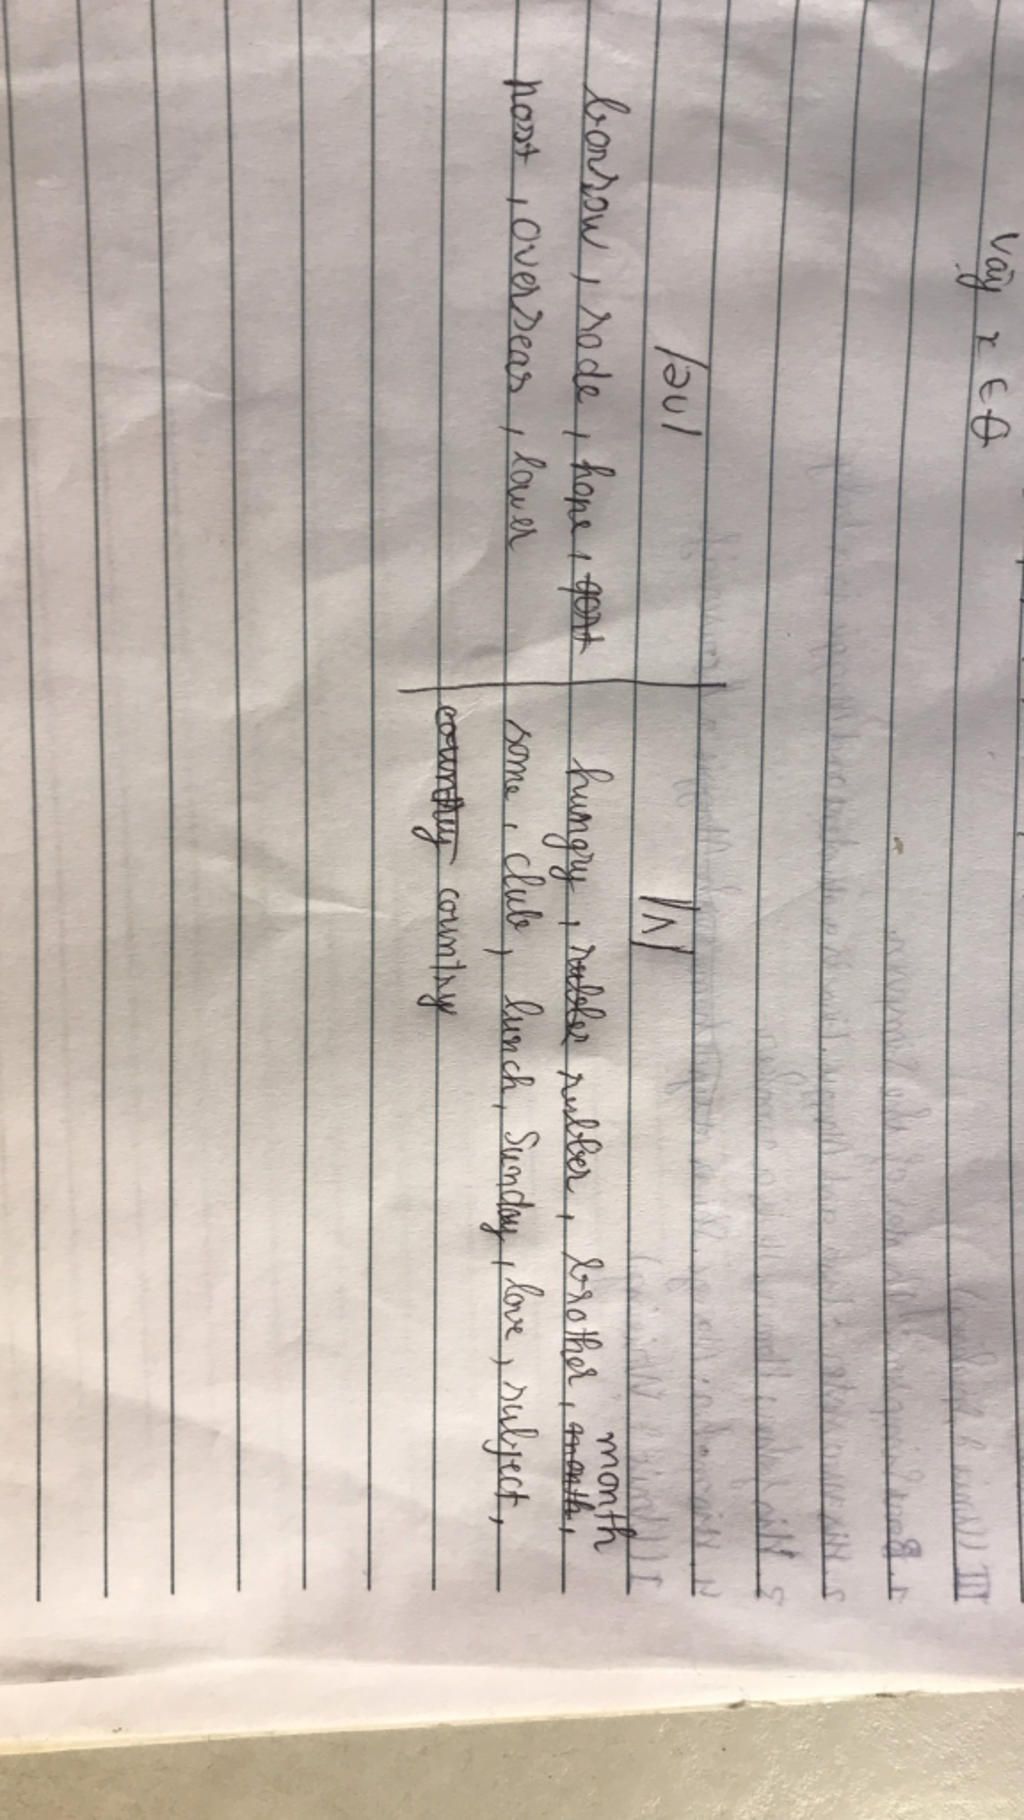 Vậy x ∈ Ꮎ
/əʊ/ /ʌ/
borrow, rode, hope, goat hungry, rubber rubber, brother, month, month
post, overseas, lower some, club, lunch, Sunday, love, subject,
country country